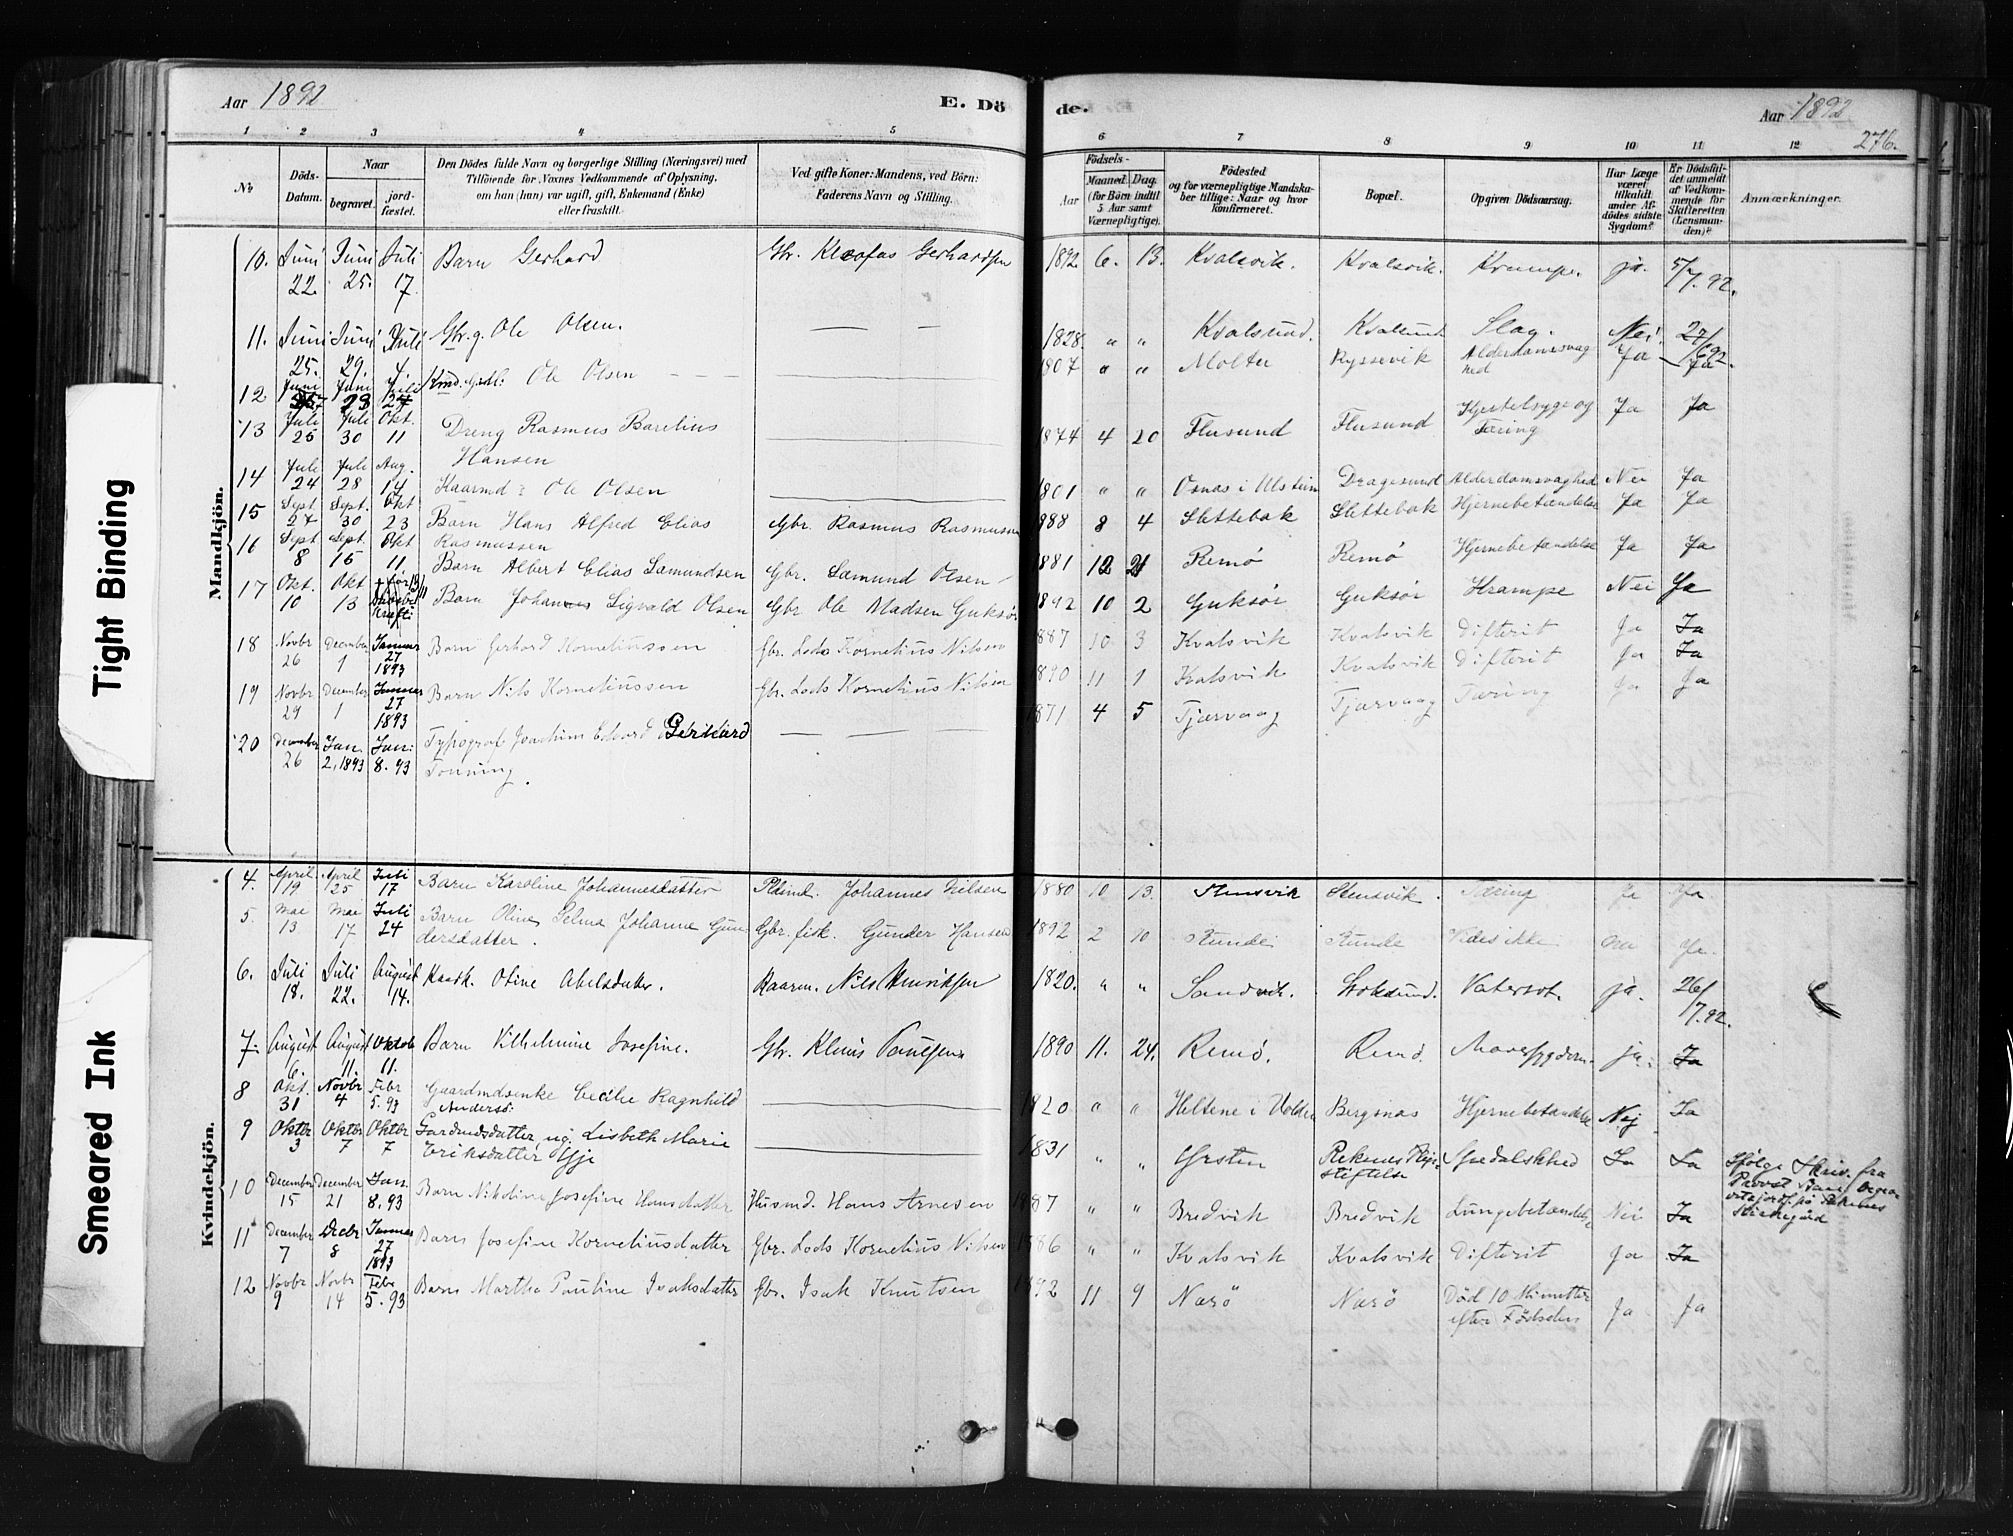 Aar 1892
E. Dö
de.
Aar 1892
276.
1 2 3 4 5 6 7 8 9 10 11 12
No
Döds-
Datum.
Naar
begravet.
jord-
fæstet.
Den Dödes fulde Navn og borgerlige Stilling (Næringsvei) med
Tilföiende for Voxnes Vedkommende af Oplysning,
om han (hun) var ugift, gift, Enkemand (Enke)
eller fraskilt.
Ved gifte Koner: Mandens, ved Börn:
Faderens Navn og Stilling.
Födsels-
Aar
Maaned. Dag.
(for Börn indtil
5 Aar samt
Værnepligtige).
Födested
og for værnepligtige Mandska-
ber tillige: Naar og hvor
konfirmeret.
Bopæl.
Opgiven Dödsaarsag.
Har Læge
været
tilkaldt
under Af-
dödes sidste
Sygdom?
Er Dödsfal-
det anmeldt
af Vedkom-
mende for
Skifteretten
(Lensman-
den)?
Anmærkninger.
Mandkjön.
10. Juni 22. Juni 25. Juli 17. Barn Gerhard Gbr. Kleofas Gerhardsen 1892 6. 13. Kvalsvik. Kvalsvik. Krampe. ja. 5/7. 92.
11. Juni 25. Juni 29. Juli 4. Gbr. g. Ole Olsen. — — 1828. " " Kvalsund. Kvalsund Slag. Nei. 27/6 92
12 Juni Juni 23 Juli Kmd. Ole Olsen — — 1807 " " Molter Ryssevik Alderdomssvag
hed Ja Ja
13 Juli 25 Juli 30 Okt. 11 Dreng Rasmus Barelius
Hansen 1874 4 20 Flusund Flusund Hjertesyge og
Tæring Ja Ja
14 Juli 24 Juli 28 Aug. 14 Kaarmd: Ole Olsen 1801 " " Osnas i Ulstein Dragesund Alderdomsvaghed Nei Ja
15 Sept 27 Sept. 30 Okt 23 Barn Hans Alfred Elias
Rasmussen Gbr. Rasmus Rasmussen 1888 8 4 Slettebak Slettebak Hjernebetændelse Ja Ja
16 Sept 8 Sept. 15 Okt 11 Barn Albert Elias Samundsen Gbr. Samund Olsen 1881 12 21 Remö Remö Hjernebetændelse Ja Ja
17 Okt. 10 Okt 13 Barn Johannes Sigvald Olsen Gbr Ole Madsen Gurksör 1892 10 2 Gurksör Gurksör Krampe Nei Ja
18 Novbr 26 December 1 Januar 27 1893 Barn Gerhard Korneliussen Gbr. Lods Kornelius Nilsen 1887 10 3 Kvalsvik Kvalsvik Difterit Ja Ja
19 Novbr 29 December 1 Januar 27 1893 Barn Nils Korneliussen Gbr. Lods Kornelius Nilsen 1890 11 1 Kvalsvik Kvalsvik Difterit Ja Ja
20 December 26 Jan. 2, 1893 Jan: 8. 93 Typograf Joachim Edvard Gerhard
Tonning. — — — 1871 4 5 Tjørvaag Tjørvaag Tæring Ja Ja
Kvindekjön.
4. April 19 April 25 Juli 17 Barn Karoline Johannesdatter Johannes Nilsen 1880 10 13. Stensvik Stensvik. Tæring Ja Ja
5. Mai 13 Mai 17 Juli 24 Barn Oline Selma Johanne Gun-
dersdatter. Gbr. fisk. Gunder Hansen 1892 2 10 Runde Runde Vides ikke Ja.
6. Juli 18. Juli 22. August 14. Kaark. Oline Abelsdatter. Kaarm. Nils Henriksen 1820. " " Sandvik. Voksund. Vatersot. ja. 26/7. 92.
7. August 6. August 11. Oktob 11. Barn Vilhelmine Josefine. Gbr. Klaus Paulsen 1890 11. 24. Remö. Remö. Mavesygdom. ja. Ja
8 Okt. 31 Novbr 4 Febr 5. 93 Gaardmdsenke Cecilie Ragnhild
Andersd. 1820 " " Heltene i Volden Bergsnas Hjernebetændelse Nej Ja
9 Oktbr 3 Oktbr 7 Oktbr 7 Gardmdsdatter, ug. Lisbeth Marie
Eriksdatter Gje 1831 " " Ørsten Reknes Pleje-
stiftelse Spedalskhed Ja Ja Ifølge Skriv. fra
Provst
Kirkegård
10 December 15 December 21 Jan. 8. 93 Barn Nikoline Josefine Hansdatter Husmd. Hans Arnesen 1887 " " Bredvik Bredvik Lungebetændelse Nei Ja
11 December 7 Decbr 8 Januar 27 1893 Barn Josefine Korneliusdatter Gbr. Lods Kornelius Nilsen 1886 " " Kvalsvik Kvalsvik Difterit Ja Ja
12 Novbr 9 Novbr 14 Febr 5. 93 Barn Martha Pauline Isaksdatter Gbr. Isak Knutsen 1892 11 9 Nærö Nærö Död 10 Minutter
efter Födselen Ja Ja
Tight Binding
Smeared Ink